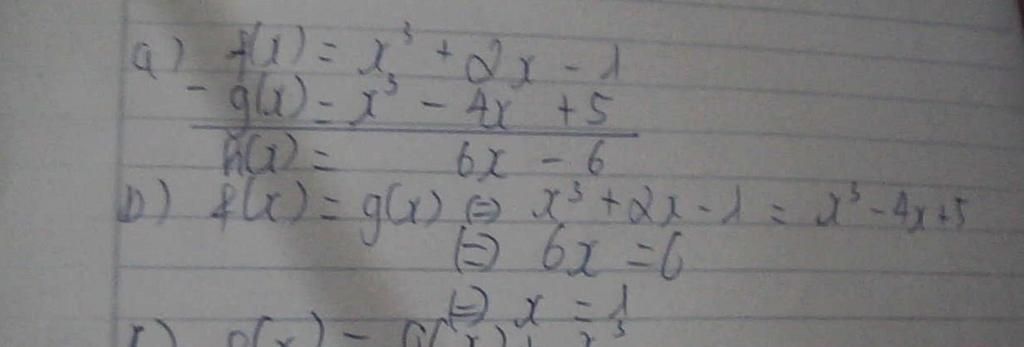 a) f(x) = x³ + 2x - 1
- g(x) = x³ - 4x + 5
h(x) = 6x - 6
b) f(x) = g(x) ⇔ x³ + 2x - 1 = x³ - 4x + 5
⇔ 6x = 6
⇔ x = 1